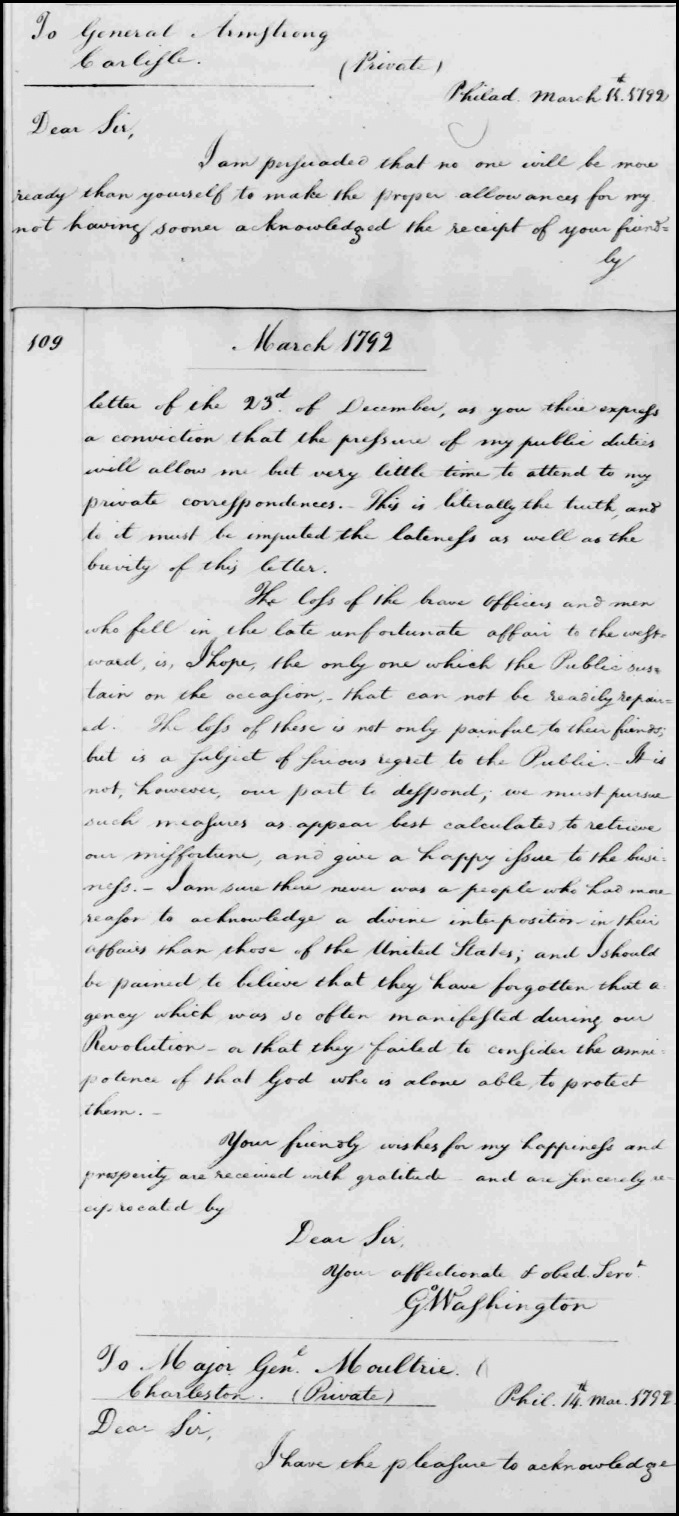 To General Armstrong
Carlisle.
(Private)
Philad. March 11th. 1792
Dear Sir,
I am persuaded that no one will be more
ready than yourself to make the proper allowances for my
not having sooner acknowledged the receipt of your friend=
ly
109
March 1792
letter of the 23d. of December, as you there express
a conviction that the pressure of my public duties
will allow me but very little time to attend to my
private correspondences.- This is literally the truth, and
to it must be imputed the lateness as well as the
brevity of this letter.
The loss of the brave Officers and men
who fell in the late unfortunate affair to the west=
ward, is, I hope, the only one which the Public sus=
tain on the occasion,- that can not be readily repair=
ed. The loss of these is not only painful to their friends;
but is a subject of serious regret to the Public.- It is
not, however, our part to despond; we must pursue
such measures as appear best calculated to retrieve
our misfortune, and give a happy issue to the busi-
ness.- I am sure there never was a people who had more
reason to acknowledge a divine interposition in their
affairs than those of the United States; and I should
be pained to believe that they have forgotten that a-
gency which was so often manifested during our
Revolution - or that they failed to consider the omni-
potence of that God who is alone able to protect
them.-
Your friendly wishes for my happiness and
prosperity are received with gratitude - and are sincerely re-
ciprocated by
Dear Sir,
Your affectionate & obed. Servt.
Go Washington
To Major Genl. Moultrie.
Charleston. (Private)
Phil. 14th. Mar. 1792
Dear Sir,
I have the pleasure to acknowledge